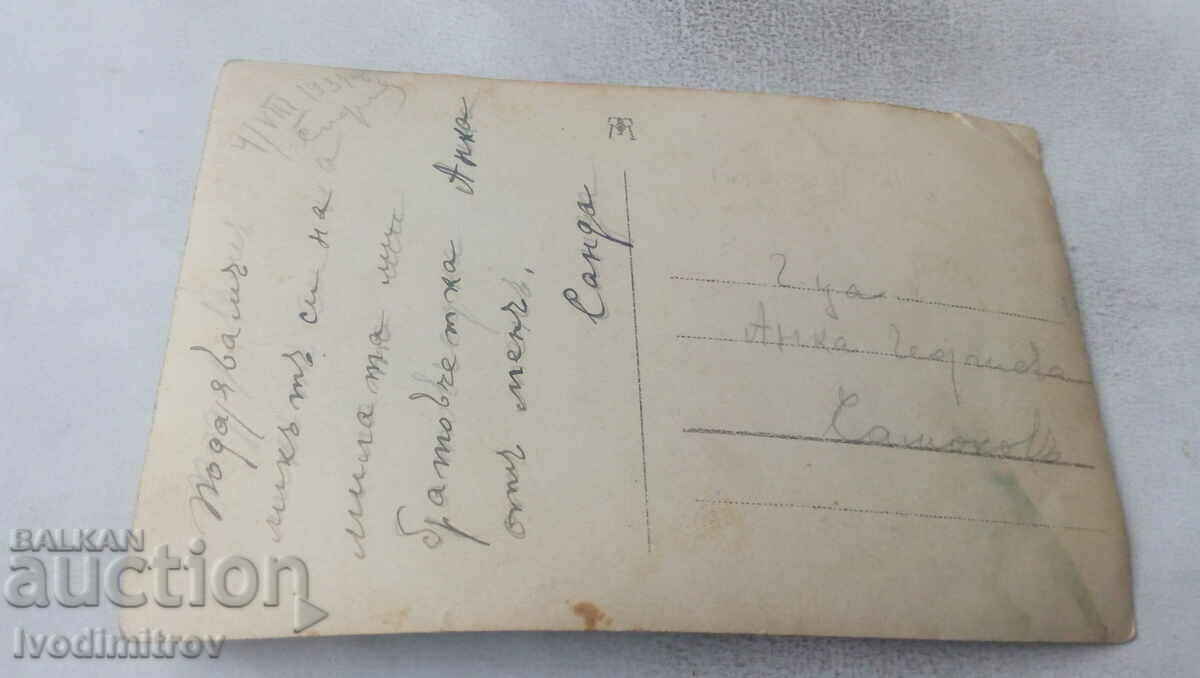 4/VIII 193
Подарявамъ
ликътъ си на
милата ми
братовчетка Анка
отъ менъ.
Санда
Г-ца
Анка Георгиева
Самоковъ
BALKAN
auction
Ivodimitrov